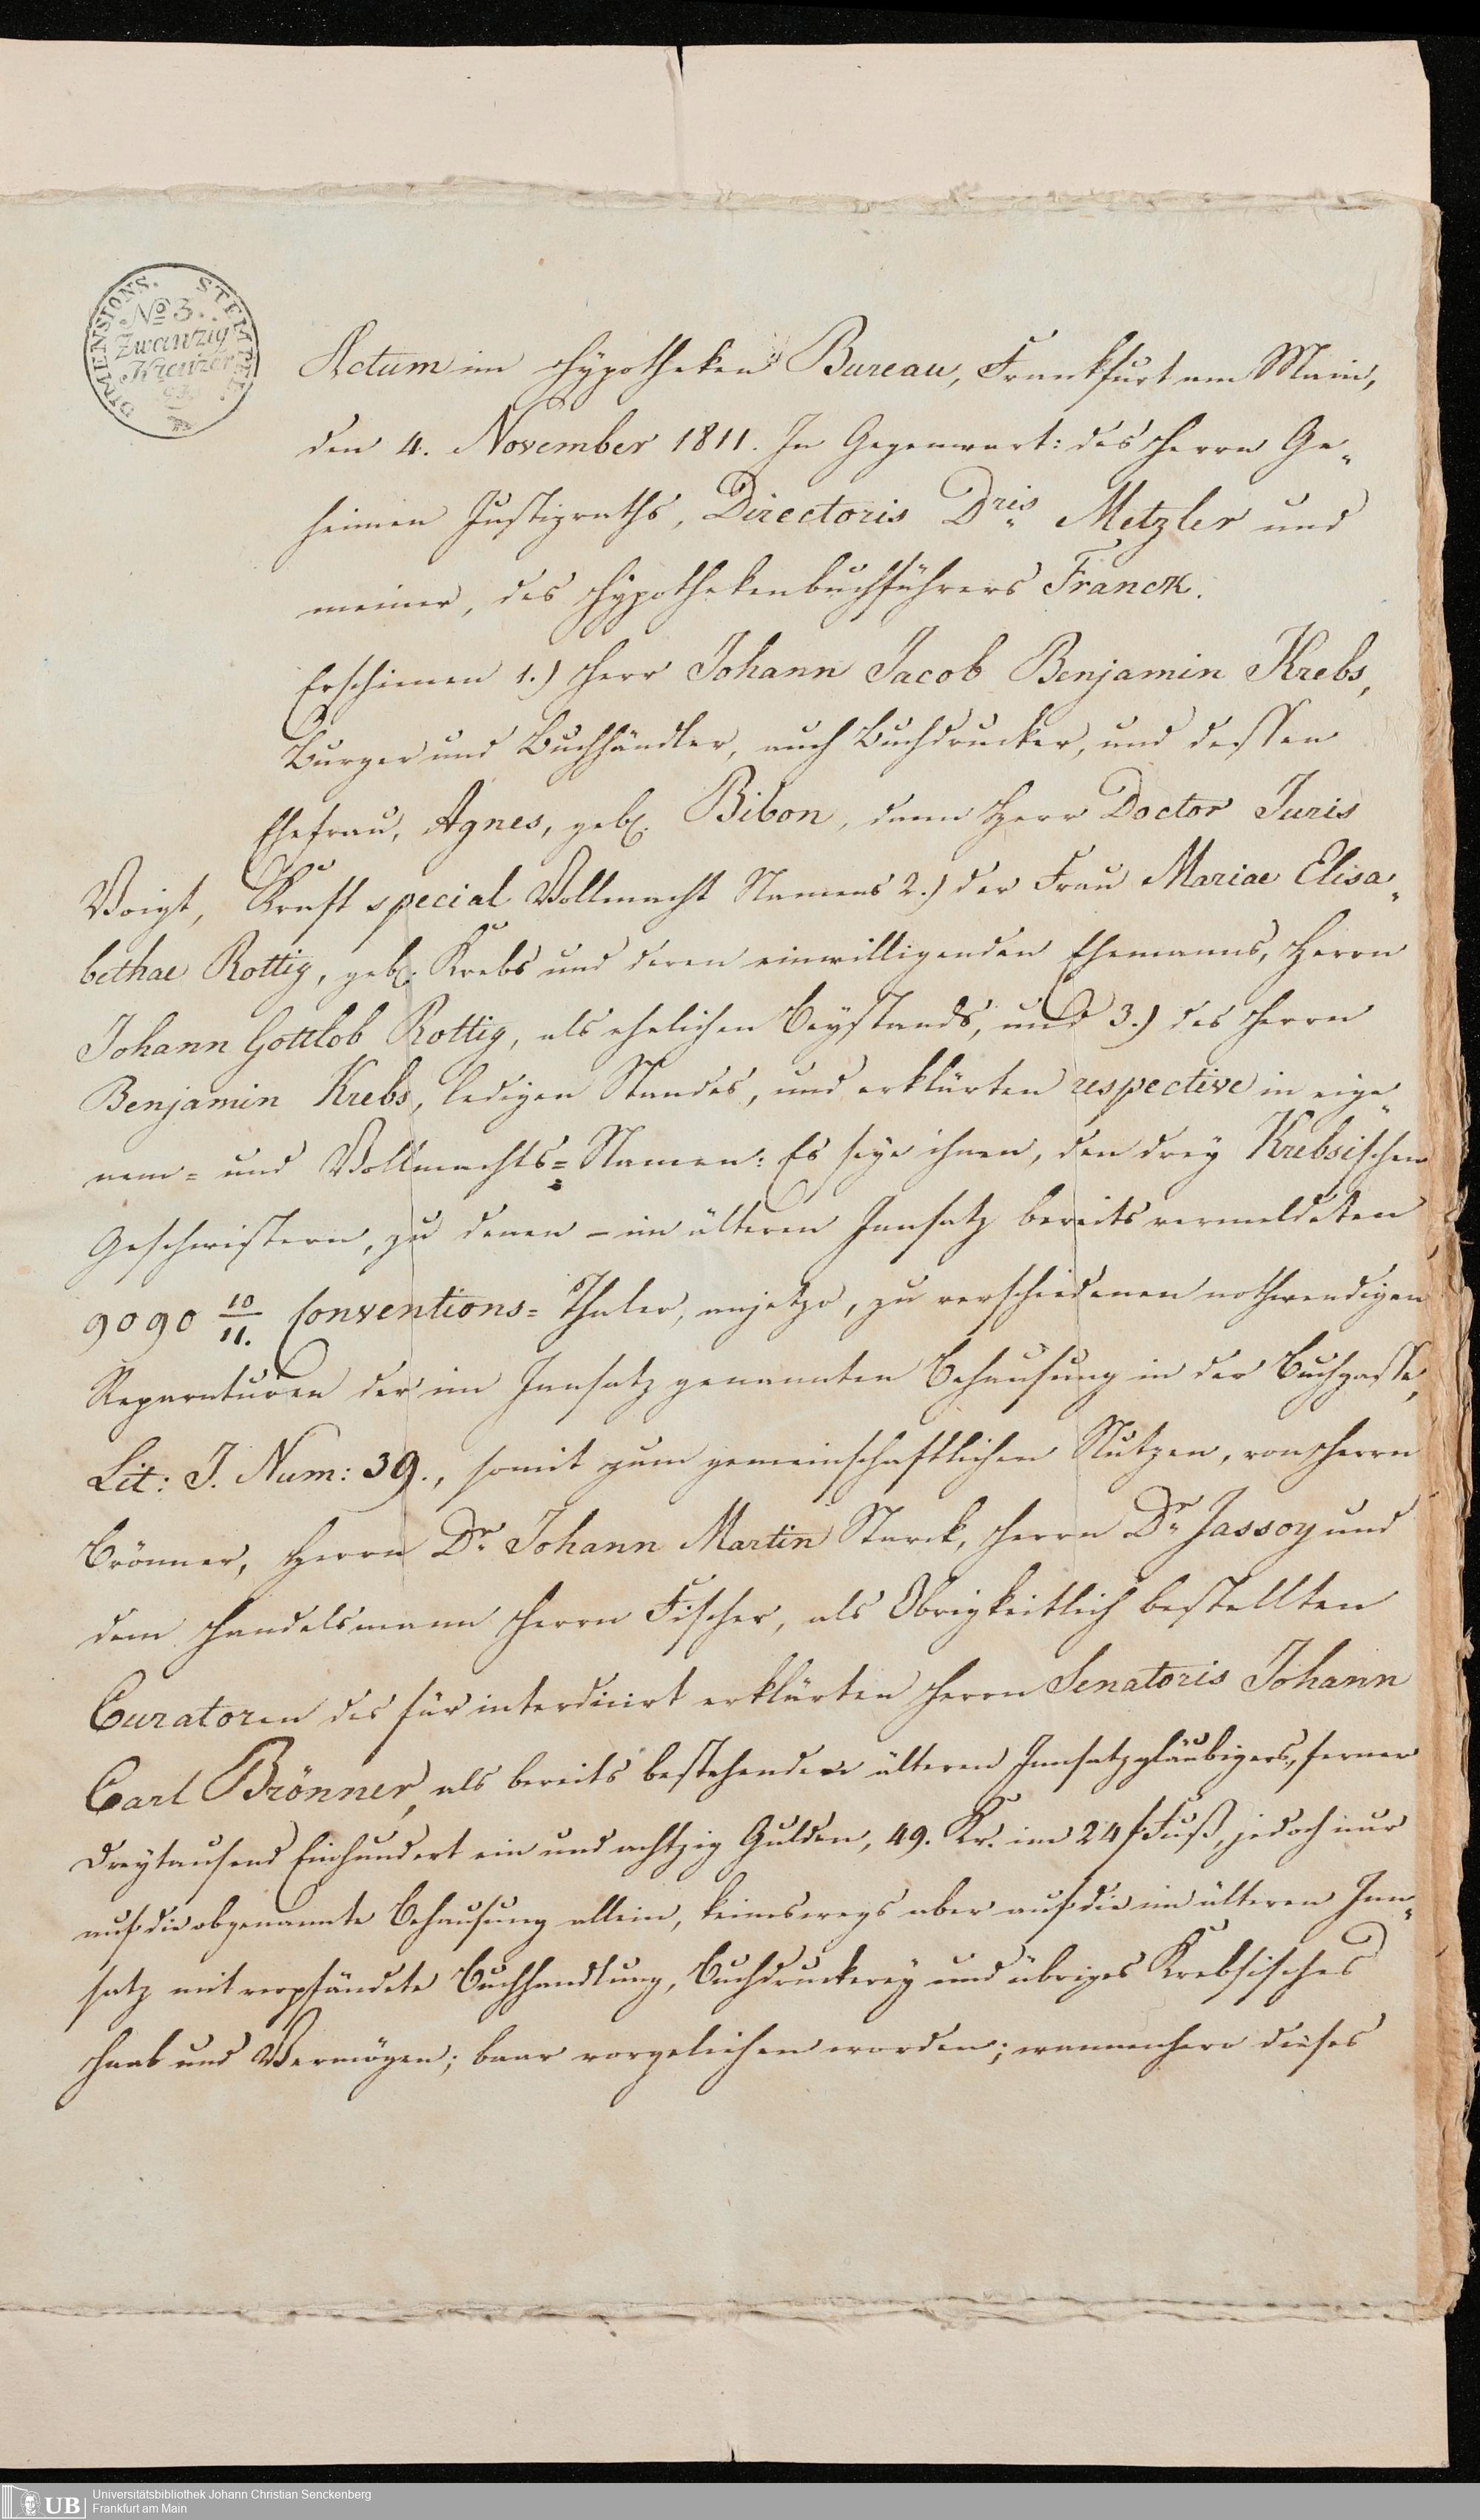 DIMENSIONS. STEMPEL.
No 3.
Zwanzig
Kreuzer
Actum im Hypotheken Bureau, Frankfurt am Main,
den 4. November 1811. In Gegenwart: des Herrn Ge„
heimen Justizraths, Directoris Dris Metzler und
meiner, des Hypothekenbuchführers Franck.
Erschienen 1.) Herr Johann Jacob Benjamin Krebs,
Burger und Buchhändler, auch Buchdrucker, und dessen
Ehefrau, Agnes, geb. Bibon, dann Herr Doctor Juris
Voigt, Kraft special Vollmacht Namens 2.) der Frau Mariae Elisa„
bethae Rottig, geb. Krebs und deren einwilligenden Ehemanns, Herrn
Johann Gottlob Rottig, als ehelichen Beystands, und 3.) des Herrn
Benjamin Krebs, ledigen Standes, und erklärten respective in eige„
nem= und Vollmachts= Namen: Es seye ihnen, den drey Krebsischen
Geschwistern, zu denen – im älteren Innsatz bereits vermeldeten
9090 10/11. Conventions= Thaler, anjetzo, zu verschiedenen nothwendigen
Reparaturen der im Innsatz genannten Behausung in der Buchgasse,
Lit: J. Num: 39., somit zum gemeinschaftlichen Nutzen, von Herrn
Brönner, Herrn Dr. Johann Martin Starck, Herrn Dr. Jassoy und
dem Handelsmann Herrn Fischer, als Obrigkeitlich bestellten
Curatoren des für interdicirt erklärten Herrn Senatoris Johann
Carl Brönner, als bereits bestehenden älteren Innsatzgläubigers, ferner
Dreytausend Einhundert ein und achtzig Gulden, 49. Kr. im 24 f Fuß, jedoch nur
auf die obgenannte Behausung allein, keineswegs aber auf die im älteren Inn„
satz mit verpfändete Buchhandlung, Buchdruckerey und übriges Krebsisches
Haab und Vermögen; baar vorgeliehen worden; wannenhero dieses
UB
Universitätsbibliothek Johann Christian Senckenberg
Frankfurt am Main